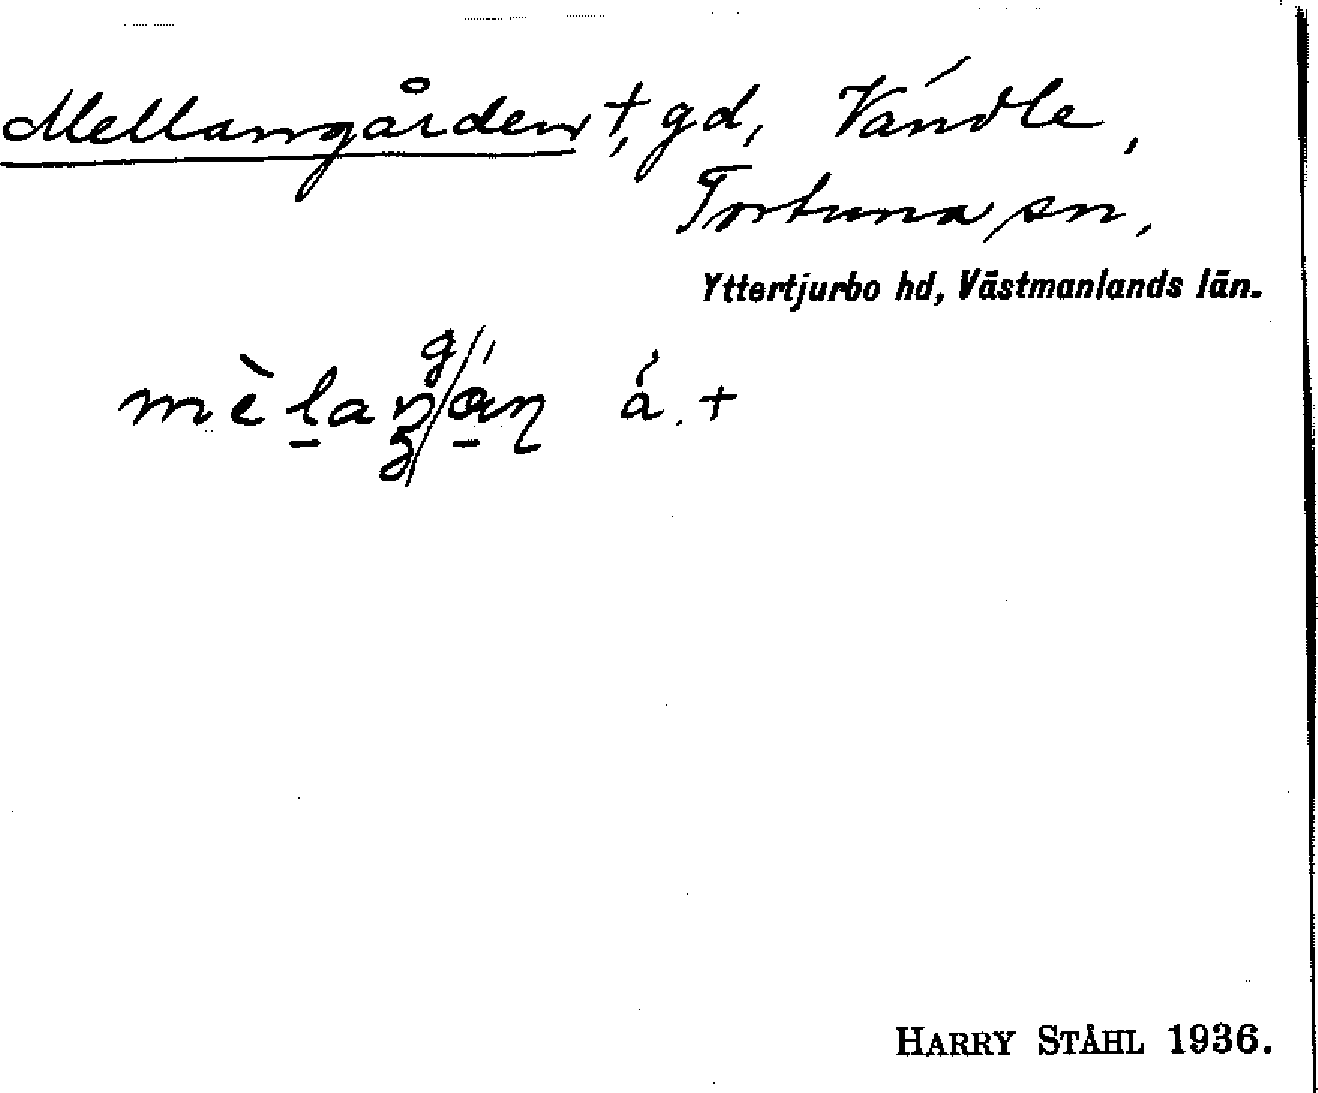 Mellangården †, gd, Vándle,
Tortuna sn,
Yttertjurbo hd, Västmanlands län.
á. †
HARRY STÅHL 1936.